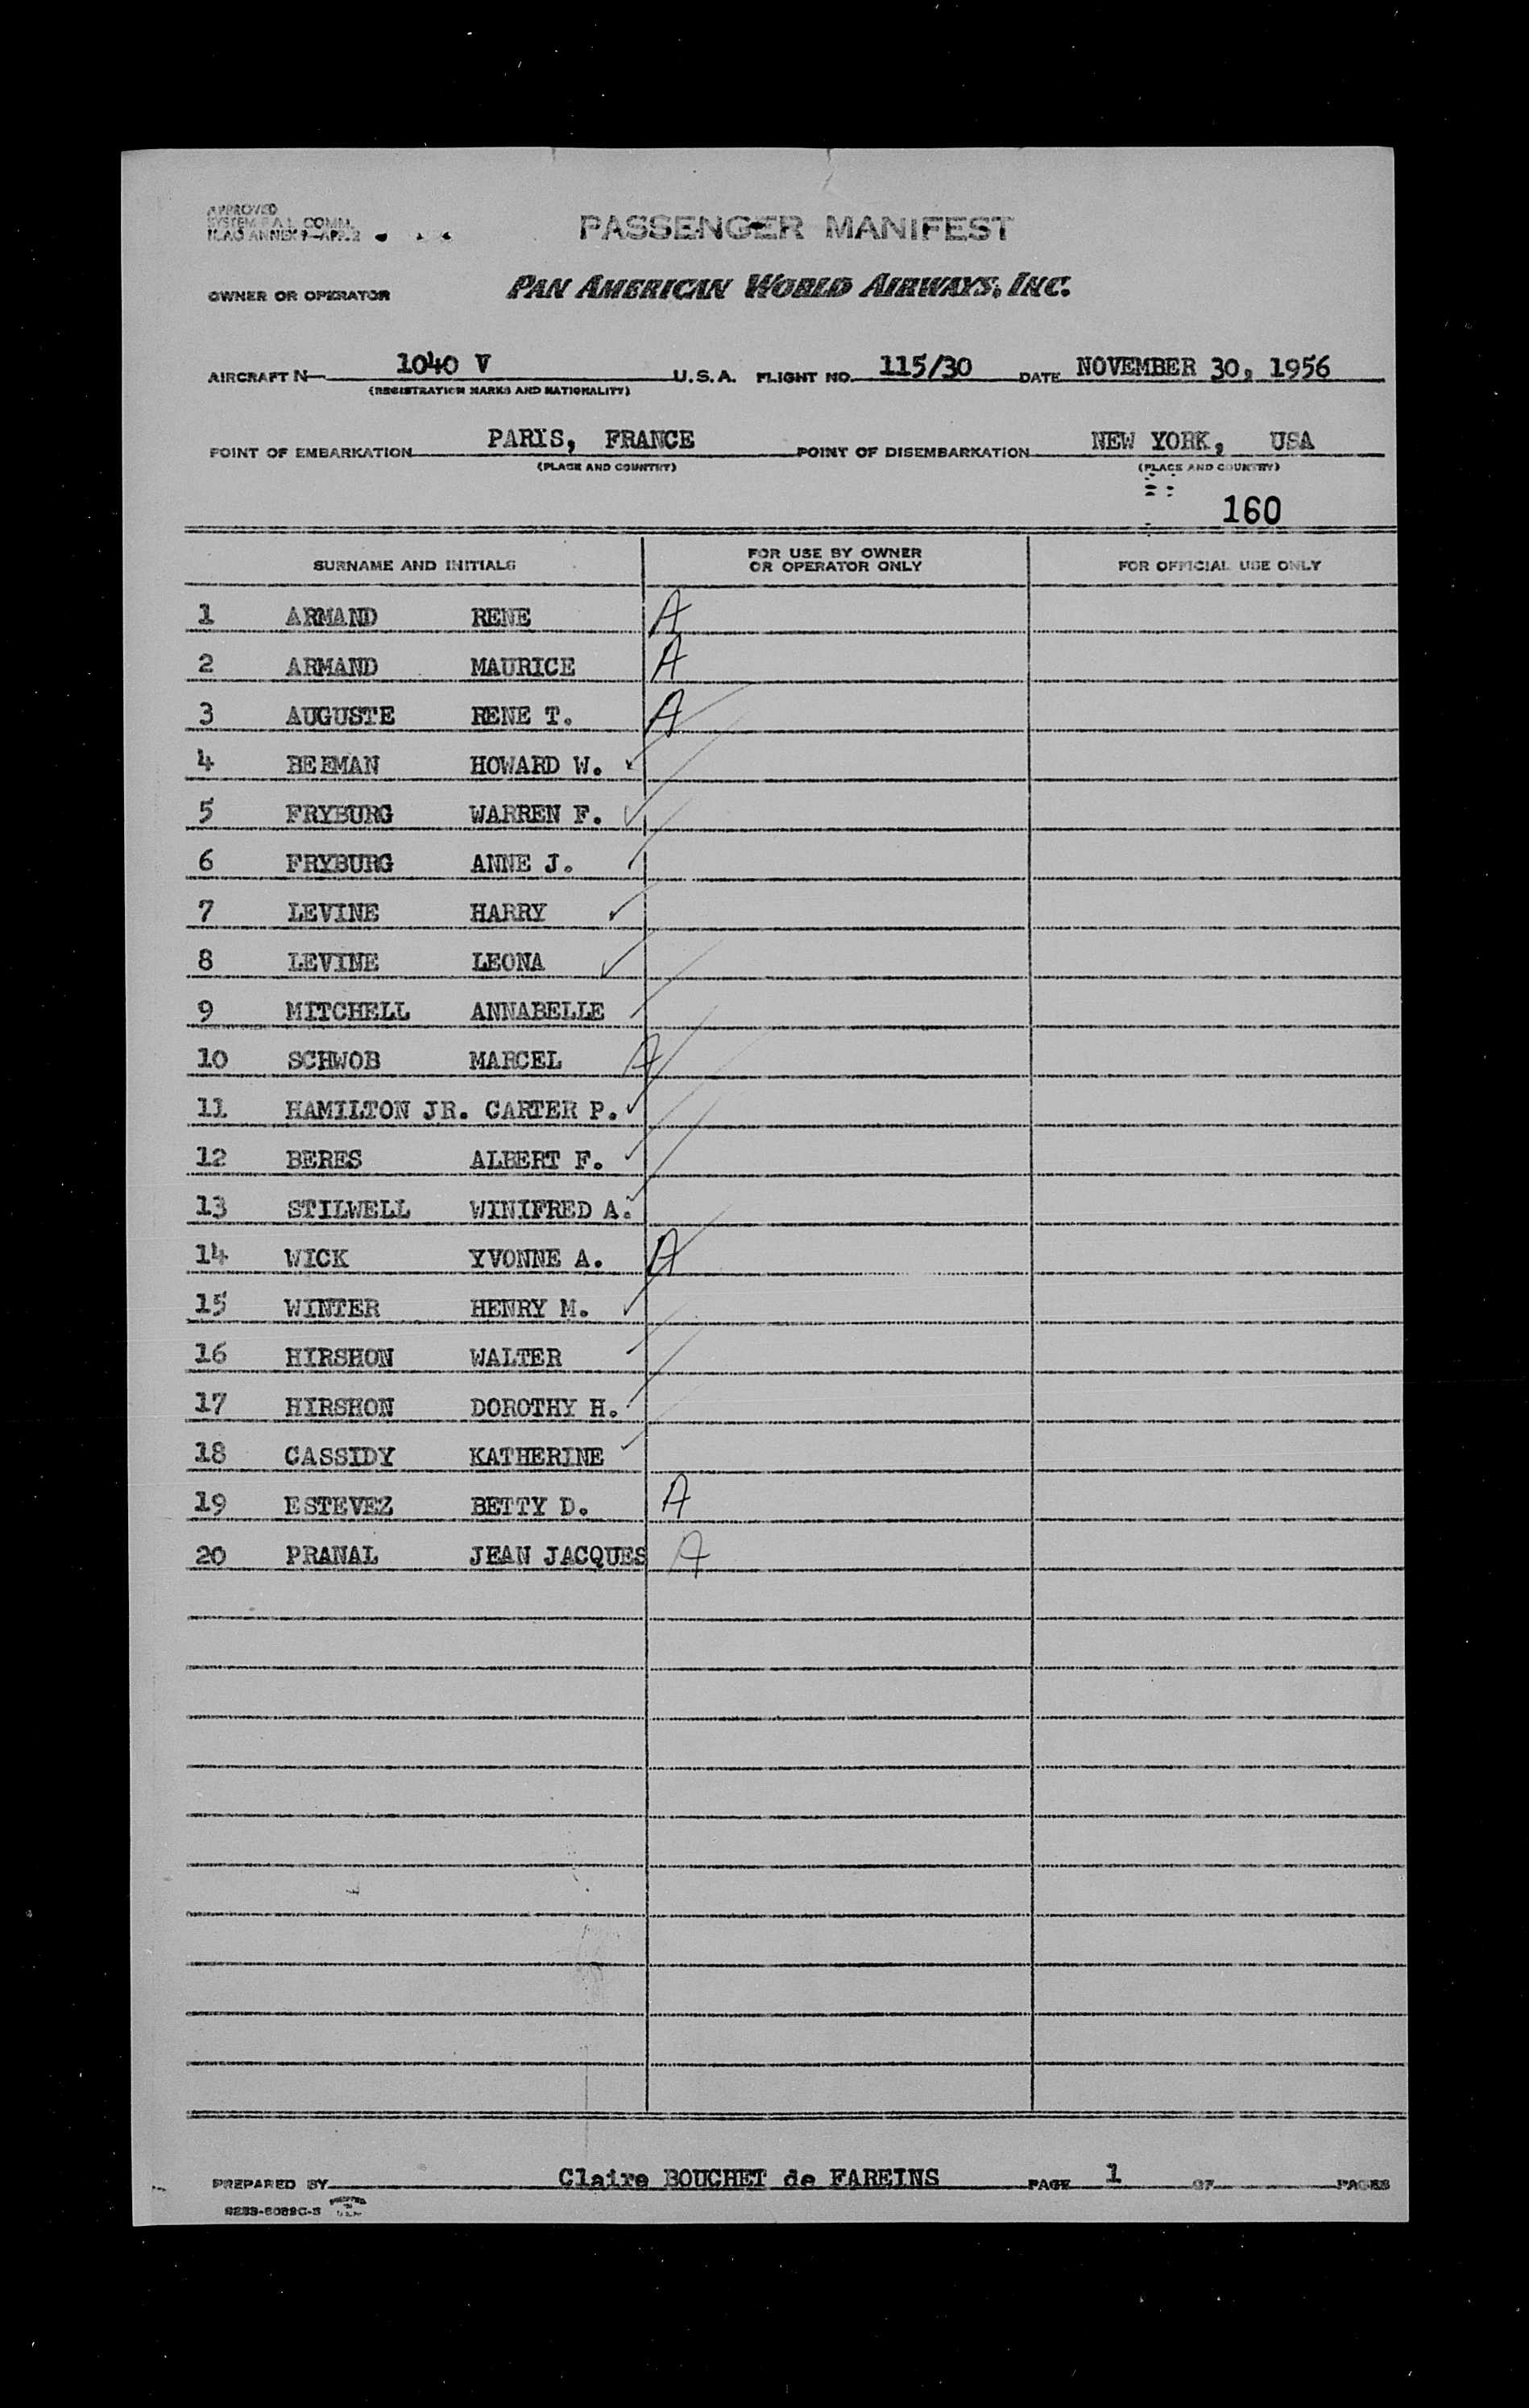 APPROVED
SYSTEM F.A.L. COMM.
ICAO ANNEX 9-APP. 2
PASSENGER MANIFEST
OWNER OR OPERATOR PAN AMERICAN WORLD AIRWAYS, INC.
AIRCRAFT N- 1040 V U.S.A. FLIGHT NO. 115/30 DATE NOVEMBER 30, 1956
(REGISTRATION MARKS AND NATIONALITY)
POINT OF EMBARKATION PARIS, FRANCE POINT OF DISEMBARKATION NEW YORK, USA
(PLACE AND COUNTRY) (PLACE AND COUNTRY)
160
SURNAME AND INITIALS FOR USE BY OWNER OR OPERATOR ONLY FOR OFFICIAL USE ONLY
1 ARMAND RENE A
2 ARMAND MAURICE A
3 AUGUSTE RENE T. A
4 BEEMAN HOWARD W. ✓
5 FRYBURG WARREN F. ✓
6 FRYBURG ANNE J. ✓
7 LEVINE HARRY ✓
8 LEVINE LEONA ✓
9 MITCHELL ANNABELLE ✓
10 SCHWOB MARCEL A
11 HAMILTON JR. CARTER P. ✓
12 BERES ALBERT F. ✓
13 STILWELL WINIFRED A. ✓
14 WICK YVONNE A. A
15 WINTER HENRY M. ✓
16 HIRSHON WALTER ✓
17 HIRSHON DOROTHY H. ✓
18 CASSIDY KATHERINE ✓
19 ESTEVEZ BETTY D. A
20 PRANAL JEAN JACQUES A
PREPARED BY Claire BOUCHET de FAREINS PAGE 1 OF PAGES